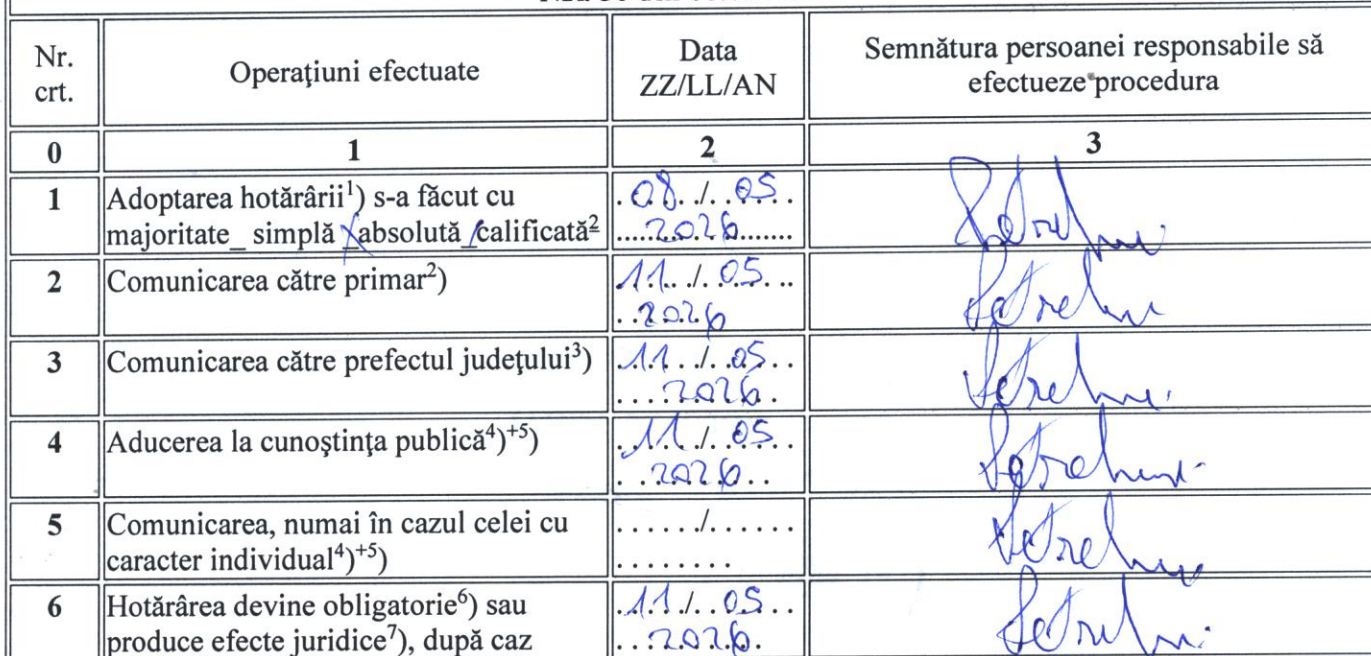 Nr. crt.
Operaţiuni efectuate
Data
ZZ/LL/AN
Semnătura persoanei responsabile să
efectueze procedura
0
1
2
3
1
Adoptarea hotărârii¹) s-a făcut cu
majoritate_ simplă _absolută_calificată²
08./.05
2026
2
Comunicarea către primar²)
11./.05
2026
3
Comunicarea către prefectul judeţului³)
11./.05
2026
4
Aducerea la cunoştinţa publică⁴)⁺⁵)
11./.05
2026
5
Comunicarea, numai în cazul celei cu
caracter individual⁴)⁺⁵)
....../......
........
6
Hotărârea devine obligatorie⁶) sau
produce efecte juridice⁷), după caz
11./.05
2026